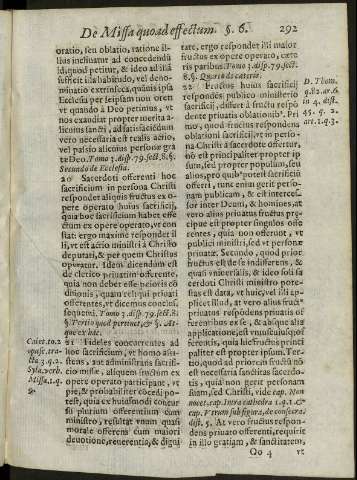 De Missa quoad effectum. §. 6.
292
oratio, seu oblatio, ratione illius
inclinatur ad concedendū
id, quod petitur, & ideo ad
sufficit illa habitudo, vel denominatio
extrinseca, quāuis ipsa
Ecclesia per se ipsam non oret
vt quando à Deo petimus, vt
nos exaudiat propter merita alicuius
sancti, ad satisfaciēdum
vero necessaria est realis actio,
vel passio alicuius personæ grata
Deo. Tomo 3. disp. 79. sect. 8. §.
Secundo de Ecclesia.
20 Sacerdoti offerenti hoc
sacrificium in persona Christi
respondet aliquis fructus ex opere
operato huius sacrificij,
quia hoc sacrificium habet effectum
ex opere operato, vt constat:
ergo maxime respondet illi,
vt est actio ministri à Christo
deputati, & per quem Christus
operatur. Idem dicendum est
de clerico priuatim offerente,
quia non debet esse peioris cōditionis,
quam reliqui priuati
offerentes, vt dicimus concius.
sequenti. Tomo 3. disp. 79. sect. 8.
§. Tertio quod pertinet, & §. Atque
ex his.
21 Fideles concurrentes ad
hoc sacrificium, vt homo assistens,
aut administrans sacrificio
missæ, aliquem fructum ex
opere operato participant, vt
pie, & probabiliter cōcedi potest,
quia ex huiusmodi concursu
plurium offerentium cum
ministro, resultat vnum quasi
morale offerens cum maiori
deuotione, reuerentia, & digni
Caiet. to. 2.
opusc. tracta
3. q. 2.
Sylu. verb.
Missa. 1. q.
9.
tate, ergo respondet illi maior
fructus ex opere operato, cæteris
paribus. Tomo 3. disp. 79. sect.
8. §. Quares de cæteris.
22 Fructus huius sacrificij
respondens publico ministerio
sacrificij, differt à fructu respōdente
priuatis oblationib⁹. Primo,
quod fructus respondens
oblationi sacrificij vt in persona
Christi à sacerdote offertur,
nō est principaliter propter ipsum,
sed propter populum, seu
alios, pro quib⁹ potest sacrificiū
offerri, tunc enim gerit personam
publicam, & est intercessor
inter Deum, & homines, at
vero alius priuatus fructus pręcipue
est propter singulos offerentes,
quia non offerunt, vt
publici ministri, sed vt personæ
priuatæ. Secundo, quod prior
fructus est de se indifferens, &
quasi vniuersalis, & ideo soli sacerdoti
Christi ministro potestas
est data, vt huic, vel illi applicet
illud, at vero alius fruct⁹
priuatus respōdens priuatis offerentibus
ex se, & absque alia
applicatione, est vnusquisque
offerentis, quia hic fructus principaliter
est propter ipsum. Tertio,
quod ad priorem fructū nō
est necessaria sanctitas ministri,
quia non gerit personam
suam, sed Christi, vide cap. Non
nocet. cap. Intra catholica 1. q. 1. &
cap. Vtrum sub figura, de consecra.
dist. 5. At vero fructus respondens
priuato offerenti, requirit
in illo gratiam, & sanctitatem,
D. Thom.
q. 82. ar. 6.
in 4. dist.
45. q. 2.
art. 2. q. 3.
Oo 4
vt